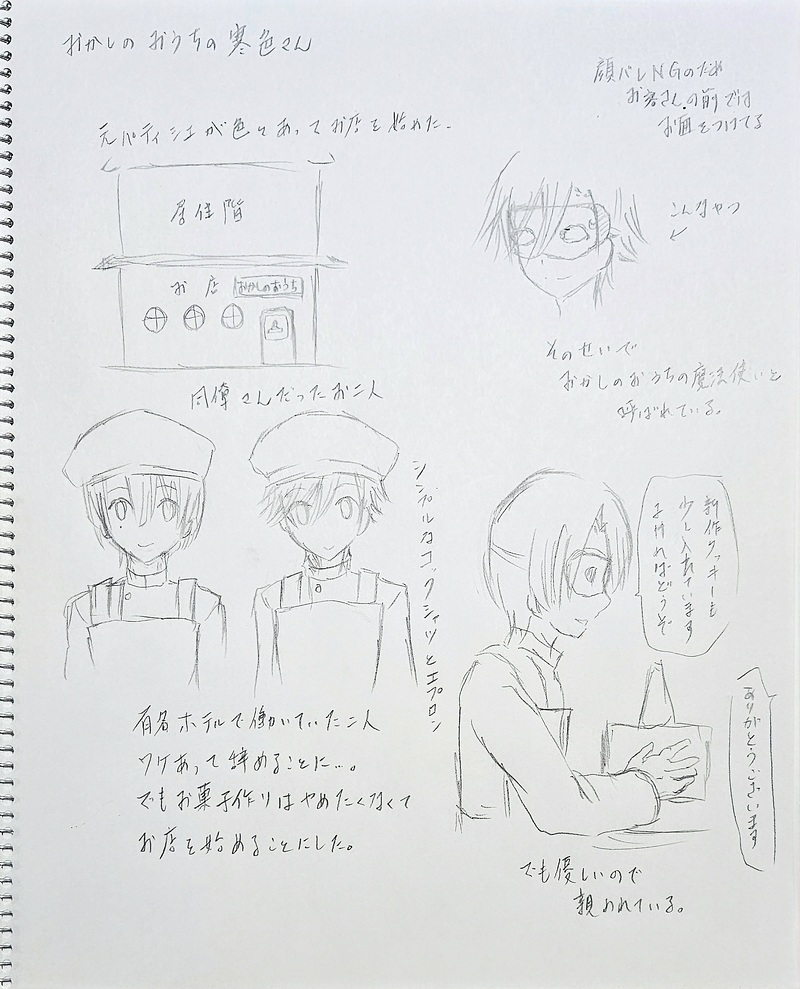 おかしのおうちの寒色さん
元パティシエが色々あってお店を始めた。
居住階
お店
おかしのおうち
顔バレNGのため
お客さんの前では
お面をつけてる
こんなやつ
そのせいで
おかしのおうちの魔法使いと
呼ばれている。
同僚さんだったお二人
シンプルなコックシャツとエプロン
有名ホテルで働いていた二人
ワケあって辞めることに…。
でもお菓子作りはやめたくなくて
お店を始めることにした。
新作クッキーも
少し入れています
よければどうぞ
ありがとうございます
でも優しいので
親しまれている。